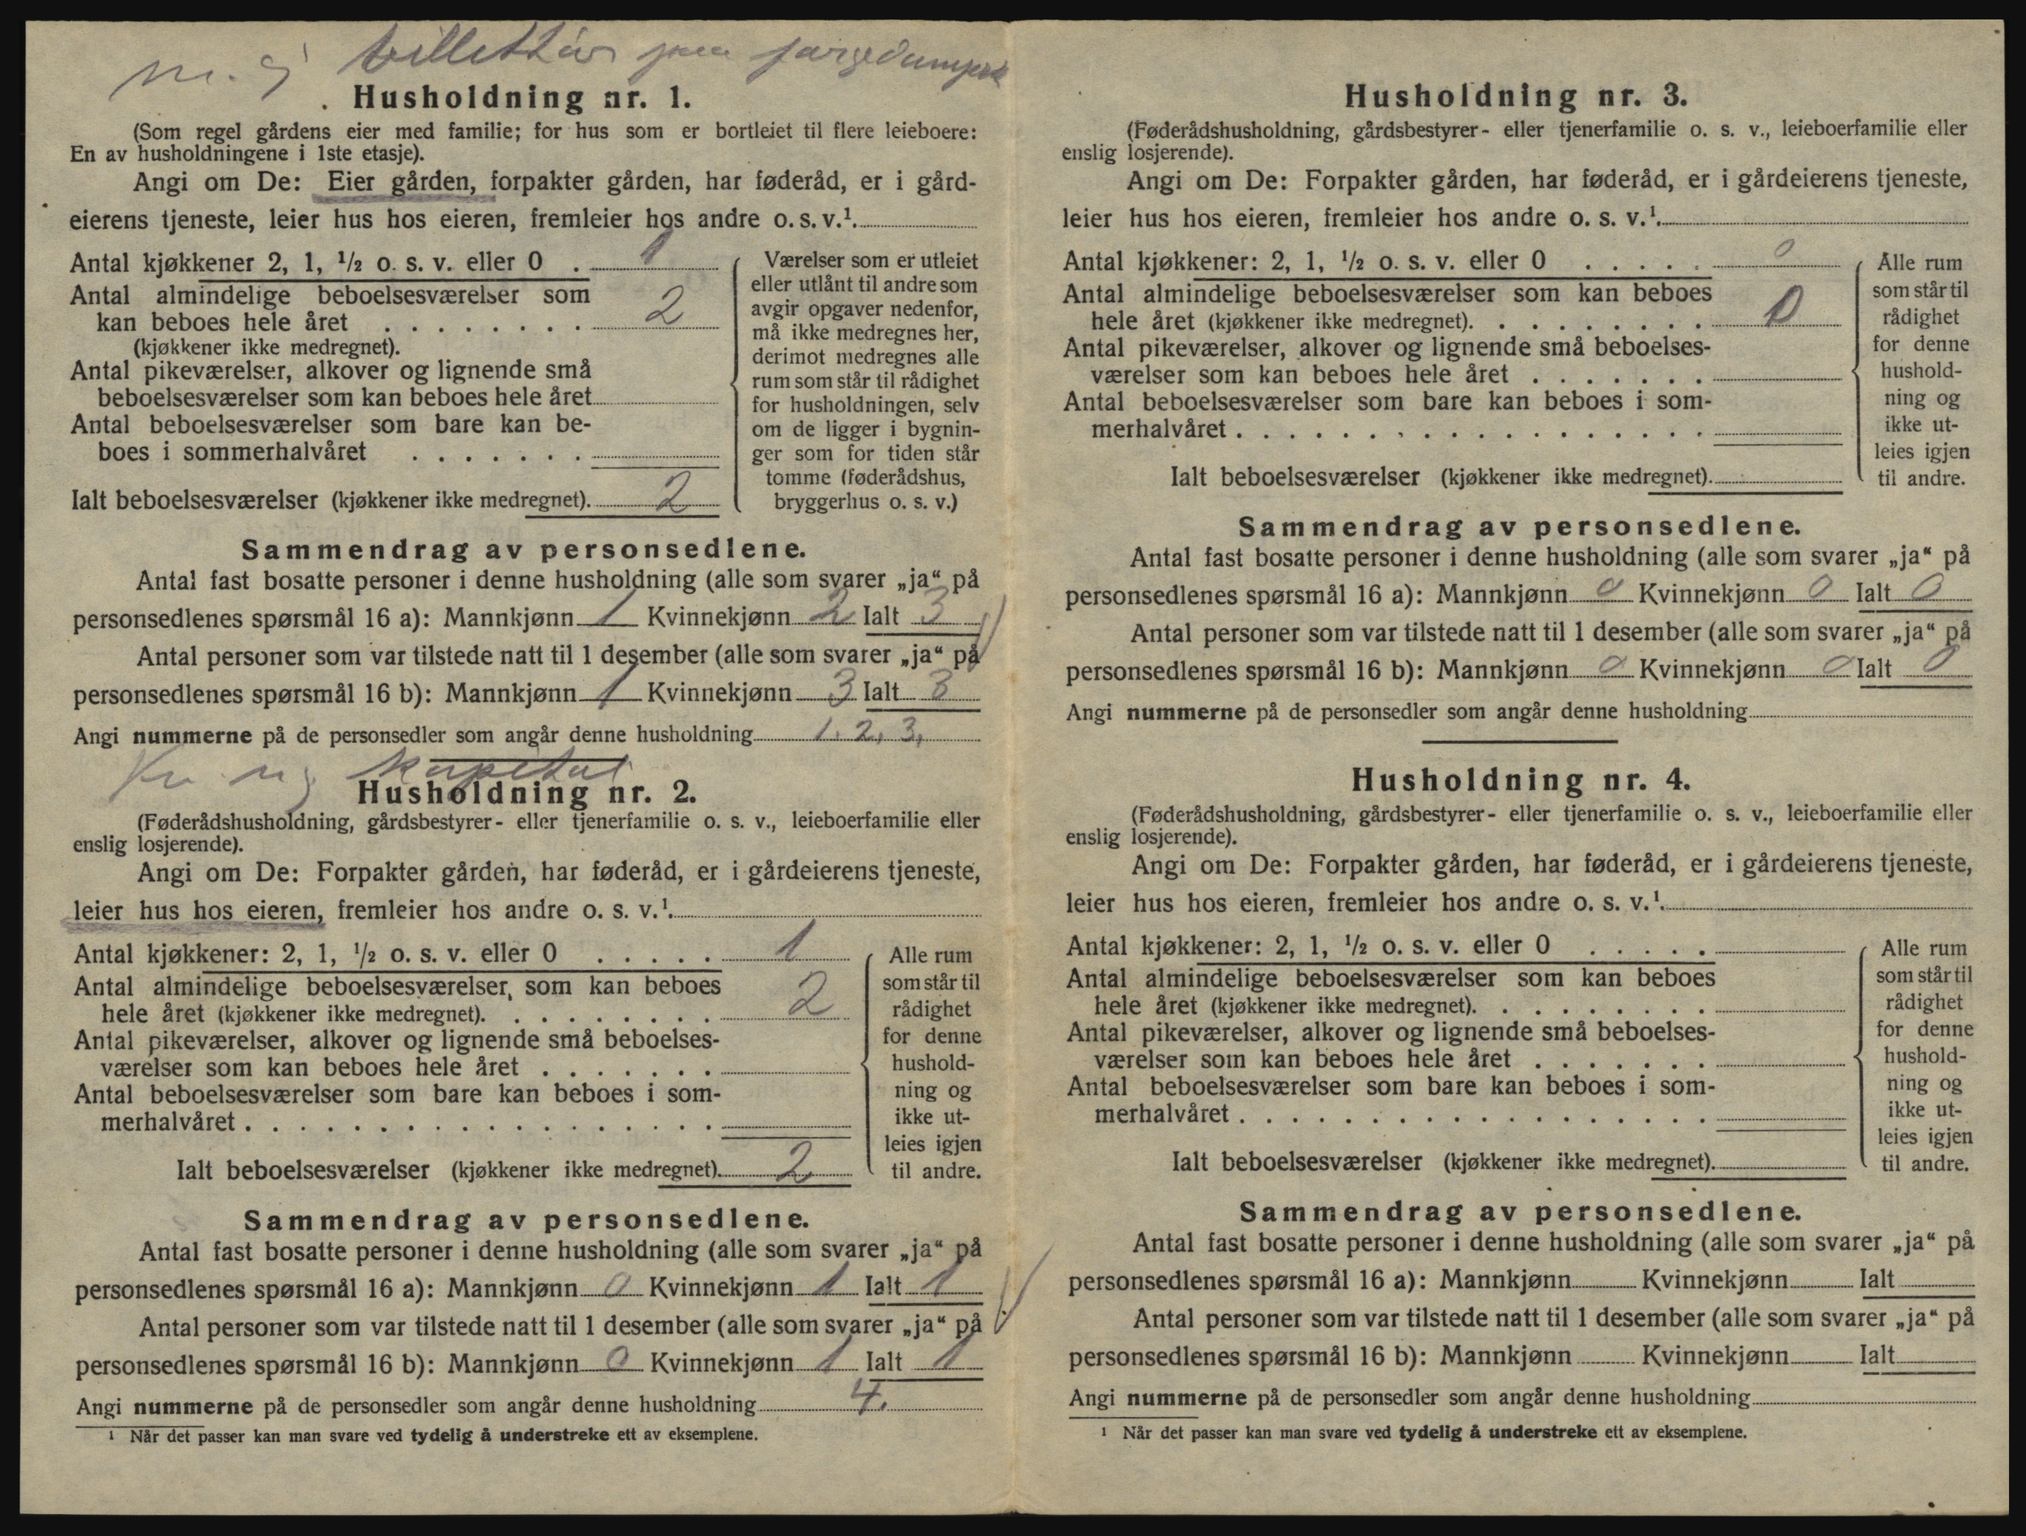 m. g billettør paa fargedamper
Husholdning nr. 1.
(Som regel gårdens eier med familie; for hus som er bortleiet til flere leieboere:
En av husholdningene i 1ste etasje).
Angi om De: Eier gården, forpakter gården, har føderåd, er i gård-
eierens tjeneste, leier hus hos eieren, fremleier hos andre o. s. v.¹.
Antal kjøkkener 2, 1, ½ o. s. v. eller 0 . 1
Antal almindelige beboelsesværelser som
kan beboes hele året . . . . . . . . 2
(kjøkkener ikke medregnet).
Antal pikeværelser, alkover og lignende små
beboelsesværelser som kan beboes hele året
Antal beboelsesværelser som bare kan be-
boes i sommerhalvåret . . . . . . .
Ialt beboelsesværelser (kjøkkener ikke medregnet). 2
Værelser som er utleiet
eller utlånt til andre som
avgir opgaver nedenfor,
må ikke medregnes her,
derimot medregnes alle
rum som står til rådighet
for husholdningen, selv
om de ligger i bygnin-
ger som for tiden står
tomme (føderådshus,
bryggerhus o. s. v.)
Sammendrag av personsedlene.
Antal fast bosatte personer i denne husholdning (alle som svarer „ja“ på
personsedlenes spørsmål 16 a): Mannkjønn 1 Kvinnekjønn 2 Ialt 3
Antal personer som var tilstede natt til 1 desember (alle som svarer „ja“ på
personsedlenes spørsmål 16 b): Mannkjønn 1 Kvinnekjønn 3 Ialt 3
Angi nummerne på de personsedler som angår denne husholdning 1. 2. 3.
kapital
Husholdning nr. 2.
(Føderådshusholdning, gårdsbestyrer- eller tjenerfamilie o. s. v., leieboerfamilie eller
enslig losjerende).
Angi om De: Forpakter gården, har føderåd, er i gårdeierens tjeneste,
leier hus hos eieren, fremleier hos andre o. s. v.¹.
Antal kjøkkener: 2, 1, ½ o. s. v. eller 0 . . . . . 1
Antal almindelige beboelsesværelser som kan beboes
hele året (kjøkkener ikke medregnet). . . . . . . . . 2
Antal pikeværelser, alkover og lignende små beboelses-
værelser som kan beboes hele året . . . . . . .
Antal beboelsesværelser som bare kan beboes i som-
merhalvåret . . . . . . . . . . . . . . . . . .
Ialt beboelsesværelser (kjøkkener ikke medregnet). 2
Alle rum
som står til
rådighet
for denne
hushold-
ning og
ikke ut-
leies igjen
til andre.
Sammendrag av personsedlene.
Antal fast bosatte personer i denne husholdning (alle som svarer „ja“ på
personsedlenes spørsmål 16 a): Mannkjønn 0 Kvinnekjønn 1 Ialt 1
Antal personer som var tilstede natt til 1 desember (alle som svarer „ja“ på
personsedlenes spørsmål 16 b): Mannkjønn 0 Kvinnekjønn 1 Ialt 1
Angi nummerne på de personsedler som angår denne husholdning 4.
¹ Når det passer kan man svare ved tydelig å understreke ett av eksemplene.
Husholdning nr. 3.
(Føderådshusholdning, gårdsbestyrer- eller tjenerfamilie o. s. v., leieboerfamilie eller
enslig losjerende).
Angi om De: Forpakter gården, har føderåd, er i gårdeierens tjeneste,
leier hus hos eieren, fremleier hos andre o. s. v.¹.
Antal kjøkkener: 2, 1, ½ o. s. v. eller 0 . . . . . 0
Antal almindelige beboelsesværelser som kan beboes
hele året (kjøkkener ikke medregnet). . . . . . . . . 0
Antal pikeværelser, alkover og lignende små beboelses-
værelser som kan beboes hele året . . . . . . .
Antal beboelsesværelser som bare kan beboes i som-
merhalvåret . . . . . . . . . . . . . . . . . .
Ialt beboelsesværelser (kjøkkener ikke medregnet).
Alle rum
som står til
rådighet
for denne
hushold-
ning og
ikke ut-
leies igjen
til andre.
Sammendrag av personsedlene.
Antal fast bosatte personer i denne husholdning (alle som svarer „ja“ på
personsedlenes spørsmål 16 a): Mannkjønn 0 Kvinnekjønn 0 Ialt 0
Antal personer som var tilstede natt til 1 desember (alle som svarer „ja“ på
personsedlenes spørsmål 16 b): Mannkjønn 0 Kvinnekjønn 0 Ialt 0
Angi nummerne på de personsedler som angår denne husholdning
Husholdning nr. 4.
(Føderådshusholdning, gårdsbestyrer- eller tjenerfamilie o. s. v., leieboerfamilie eller
enslig losjerende).
Angi om De: Forpakter gården, har føderåd, er i gårdeierens tjeneste,
leier hus hos eieren, fremleier hos andre o. s. v.¹.
Antal kjøkkener: 2, 1, ½ o. s. v. eller 0 . . . . .
Antal almindelige beboelsesværelser som kan beboes
hele året (kjøkkener ikke medregnet). . . . . . . . .
Antal pikeværelser, alkover og lignende små beboelses-
værelser som kan beboes hele året . . . . . . .
Antal beboelsesværelser som bare kan beboes i som-
merhalvåret . . . . . . . . . . . . . . . . . .
Ialt beboelsesværelser (kjøkkener ikke medregnet).
Alle rum
som står til
rådighet
for denne
hushold-
ning og
ikke ut-
leies igjen
til andre.
Sammendrag av personsedlene.
Antal fast bosatte personer i denne husholdning (alle som svarer „ja“ på
personsedlenes spørsmål 16 a): Mannkjønn Kvinnekjønn Ialt
Antal personer som var tilstede natt til 1 desember (alle som svarer „ja“ på
personsedlenes spørsmål 16 b): Mannkjønn Kvinnekjønn Ialt
Angi nummerne på de personsedler som angår denne husholdning
¹ Når det passer kan man svare ved tydelig å understreke ett av eksemplene.